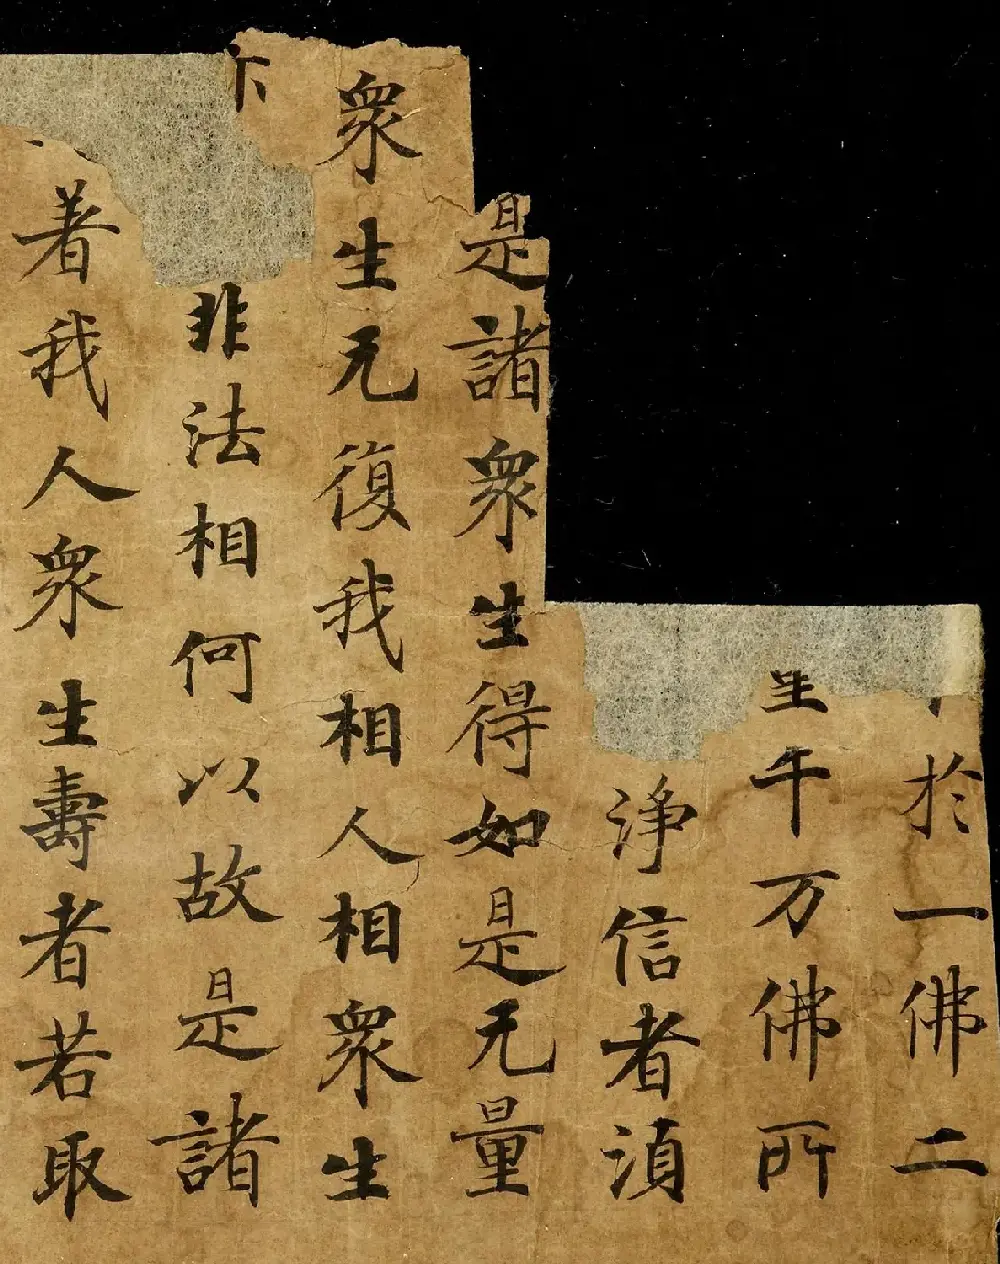 於一佛二
千万佛所
淨信者湏
是諸衆生得如是无量
衆生无復我相人相衆生
非法相何以故是諸
著我人衆生壽者若取